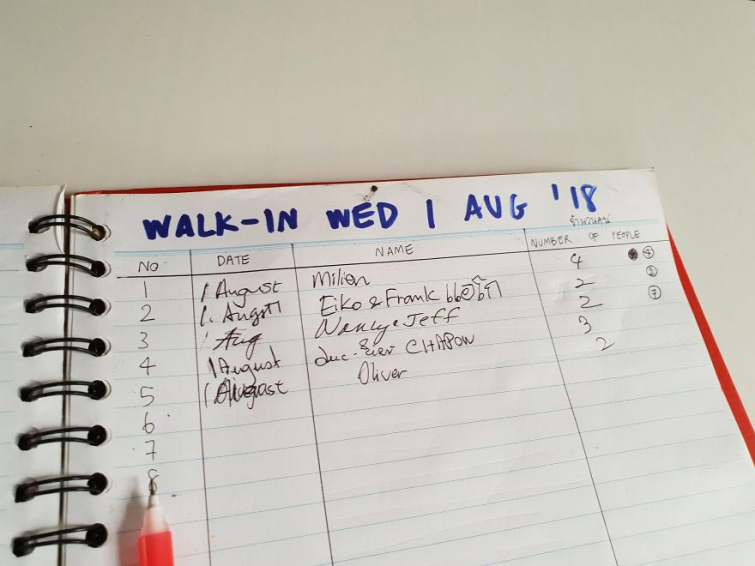 WALK-IN WED 1 AUG '18
จำนวนคน
NO DATE NAME NUMBER OF PEOPLE
1 1 August Milion 4 4
2 1. August Eiko & Frank แอโก้ 2 2
3 1 Aug Nancy & Jeff 2 7
4 1 August CHAPON 3
5 1 August Oliver 2
6
7
8